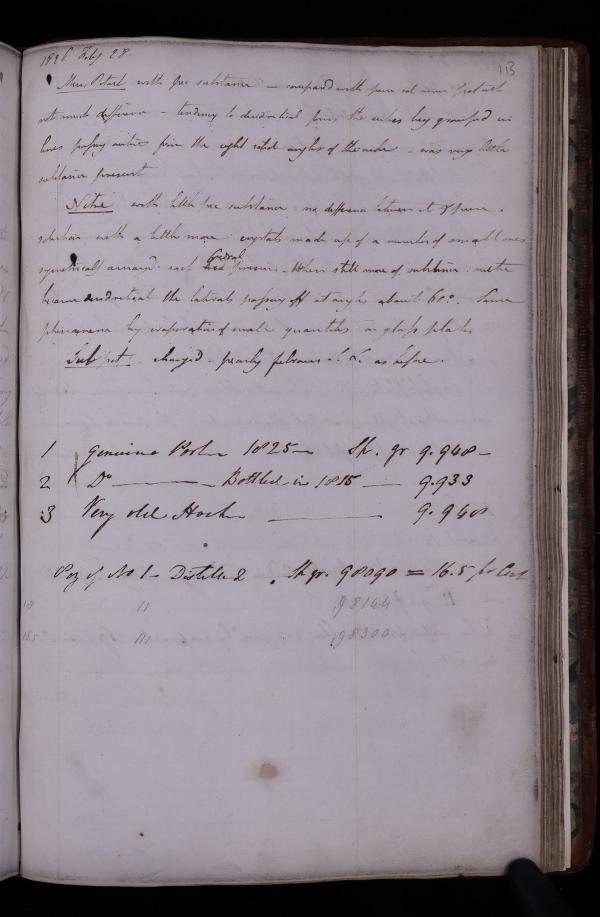 1826 Feby 28.
113
Mur. Potash with free substance — compared with pure sol. gave
not much difference — tendency to dendritical form, the cubes being grouped in
lines passing outwards from the eight solid angles of the cube - was very little
substance present
Nitre with little free substance no difference between it & pure
solution with a little more crystals made up of a number of small ones
symmetrically arranged each Crystal When still more of substance nitre
became dendritical the laterals passing off at angles about 60°. Same
phenomena by evaporation of small quantities on glass plates
Sulp. pot. changed - pearly fibrous &c &c as before.
1 Genuine Port 1825 — Sp. gr 9.948 —
2 Do ——— Bottled in 1815 — 9.933
3 Very old Hock ——— 9.948
8 oz of No 1 — Distilled Sp gr. 98090 = 16.5 per Cent
18 11 98144
16.5 111 98300